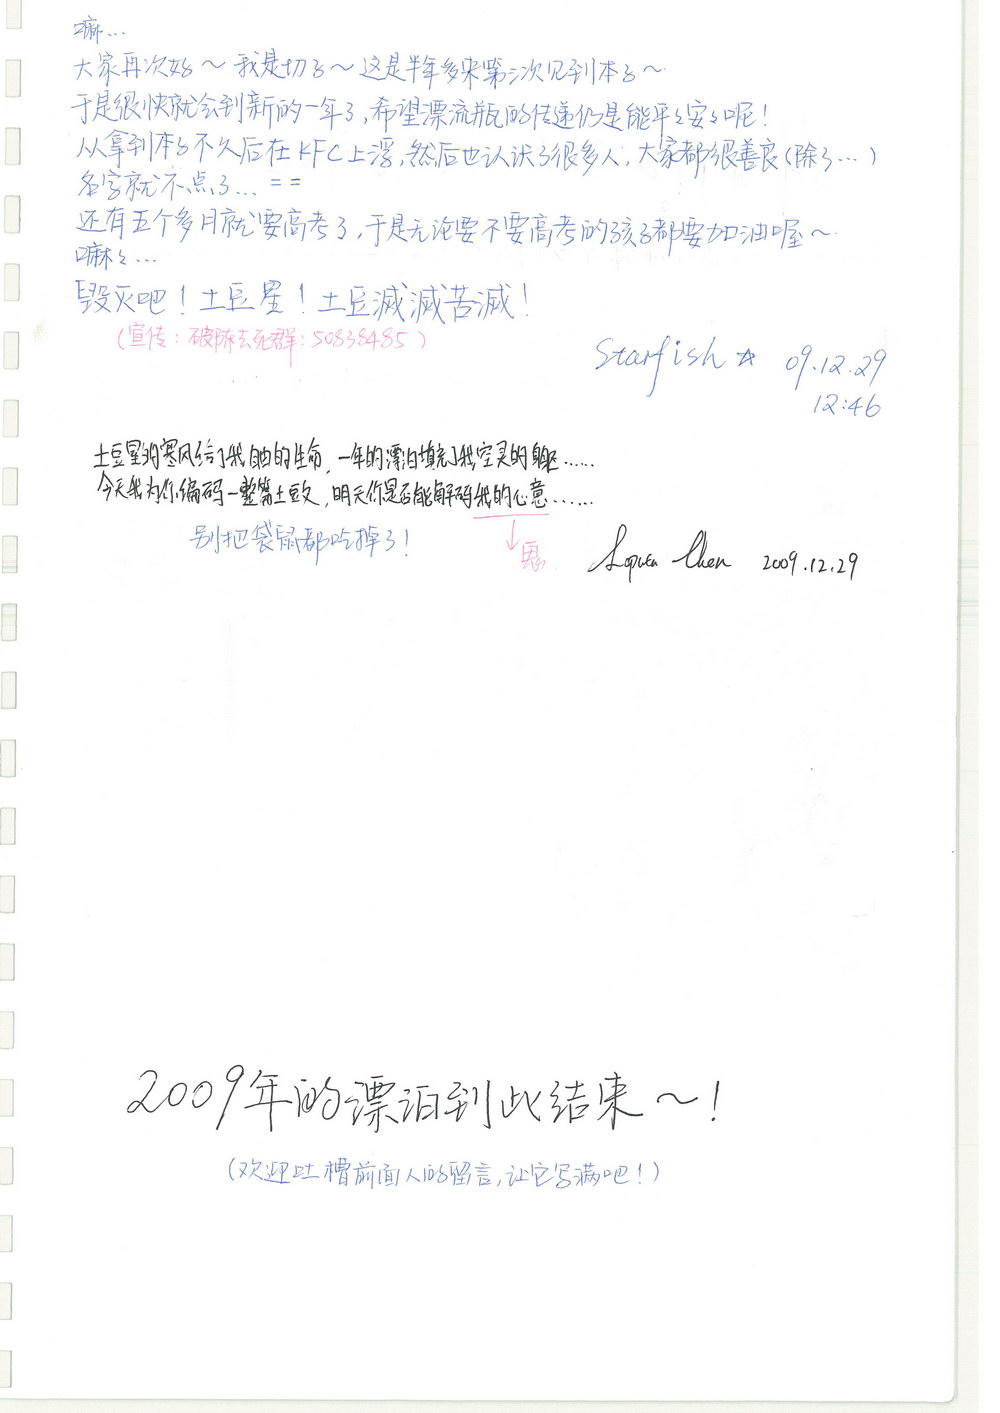 嘛…
大家再次好～我是切了～这是半年多来第三次见到本子～
于是很快就会到新的一年了,希望漂流瓶的传递仍是能平平安安呢!
从拿到本子不久后在KFC上浮,然后也认识了很多人,大家都很善良(除了…)
名字就不点了… ==
还有五个多月就要高考了,于是无论要不要高考的孩子都要加油喔～
嘛嘛…
毁灭吧!土豆星!土豆滅滅苦滅!
(宣传:破除去死群:50838485)
Starfish ☆ 09.12.29
12:46
土豆星的寒风给了我自由的生命,一年的漂泊填充了我空灵的身躯……
今天我为你编码一整篇土豆文,明天你是否能解码我的心意……
别把袋鼠都吃掉了!
Chen 2009.12.29
2009年的漂泊到此结束～!
(欢迎吐槽前面人的留言,让它写满吧!)